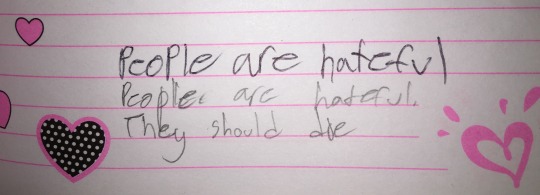 People are hateful
People are hateful.
They should die